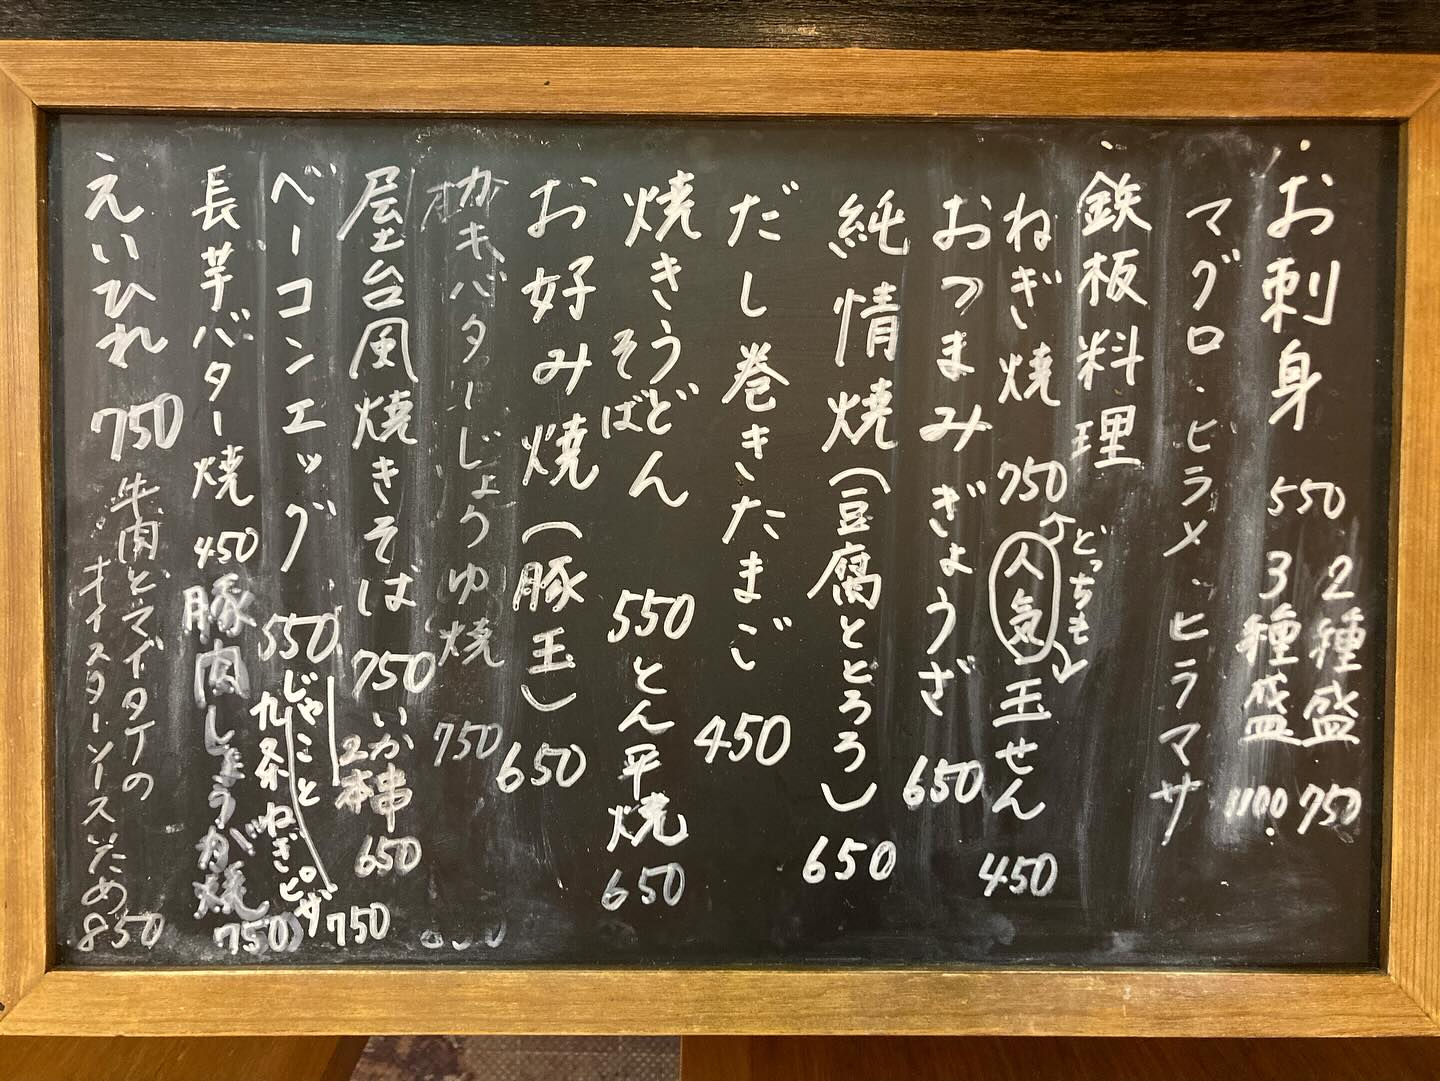 ・お刺身 550
2種盛 750
3種盛 1100
マグロ・ビラメ・ヒラマサ
・鉄板料理
どっちも
ねぎ焼 750 人気 玉せん 450
おつまみぎょうざ 650
純情焼(豆腐ととろろ) 650
だし巻きたまご 450
焼きうどん
そば 550 とん平焼 650
お好み焼(豚玉) 650
カキバターじょうゆ焼 750
屋台風焼きそば 750 いか串
2本 650
ベーコンエッグ 550 じゃこと
九条ねぎピザ 750
長芋バター焼 450 豚肉しょうが焼 750
えいひれ 750 牛肉とマイタケの
オイスターソースいため 850